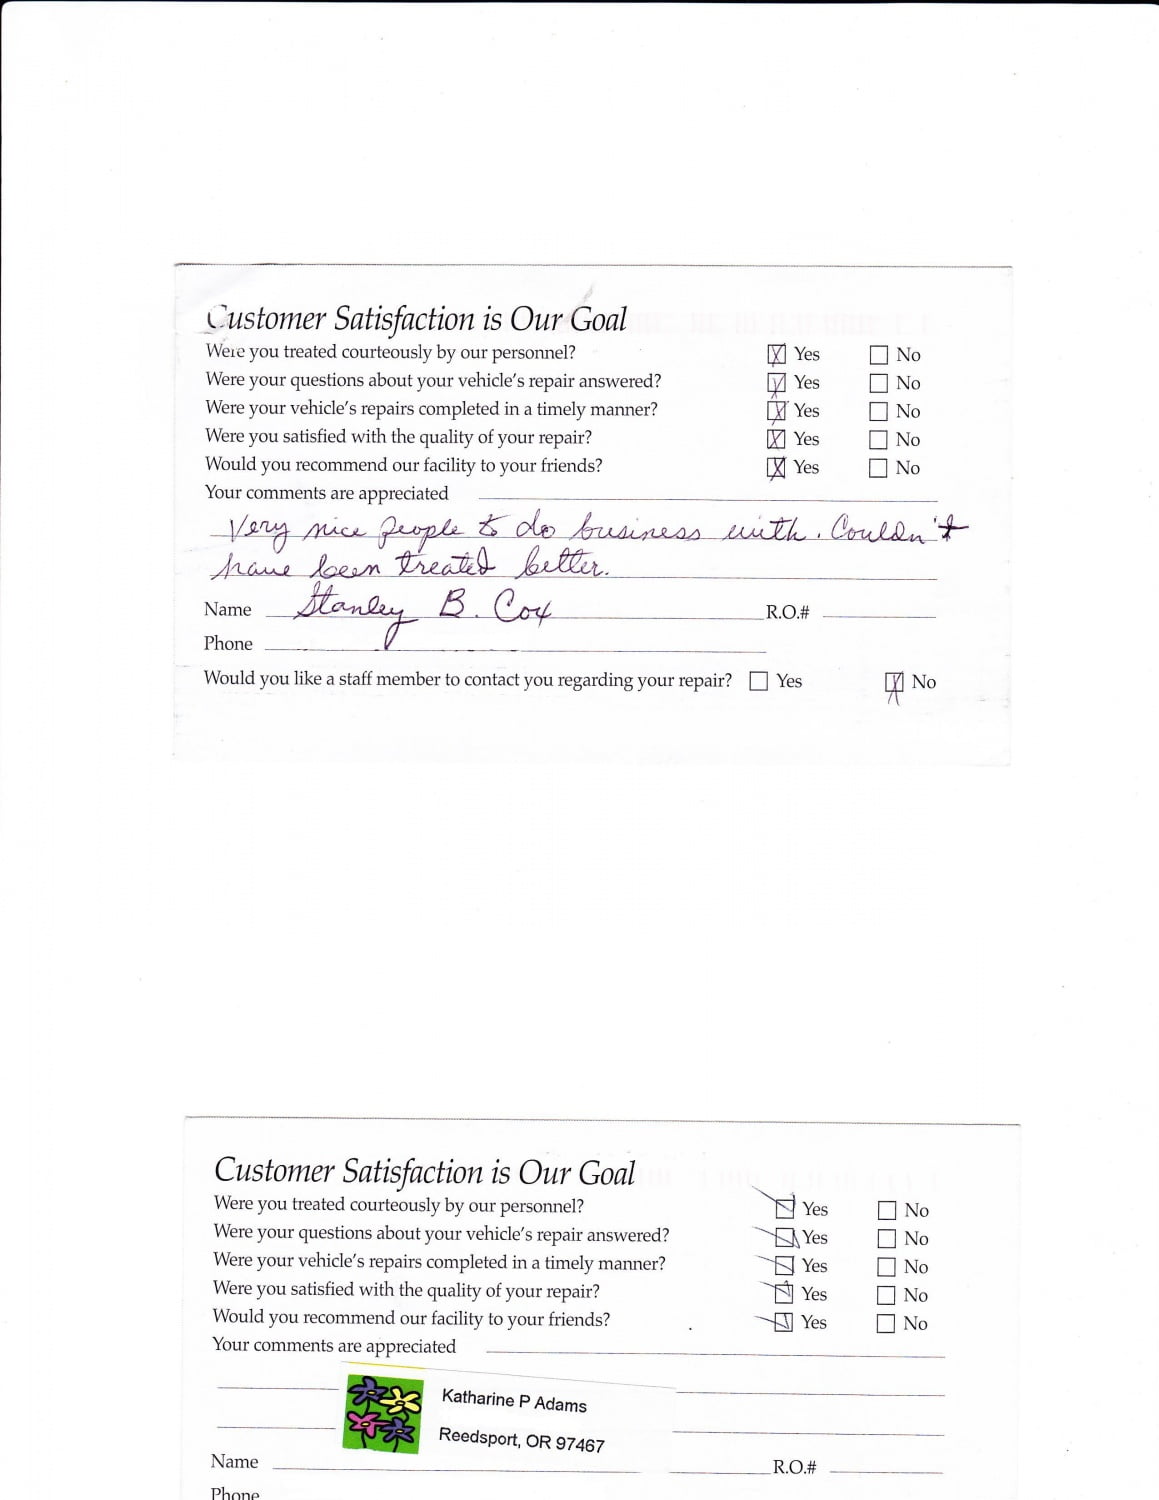 Customer Satisfaction is Our Goal
Were you treated courteously by our personnel? Yes No
Were your questions about your vehicle's repair answered? Yes No
Were your vehicle's repairs completed in a timely manner? Yes No
Were you satisfied with the quality of your repair? Yes No
Would you recommend our facility to your friends? Yes No
Your comments are appreciated
Very nice people to do business with. Couldn't
have been treated better.
Name Stanley B. Cox R.O.#
Phone
Would you like a staff member to contact you regarding your repair? Yes No
Customer Satisfaction is Our Goal
Were you treated courteously by our personnel? Yes No
Were your questions about your vehicle's repair answered? Yes No
Were your vehicle's repairs completed in a timely manner? Yes No
Were you satisfied with the quality of your repair? Yes No
Would you recommend our facility to your friends? Yes No
Your comments are appreciated
Katharine P Adams
Reedsport, OR 97467
Name R.O.#
Phone